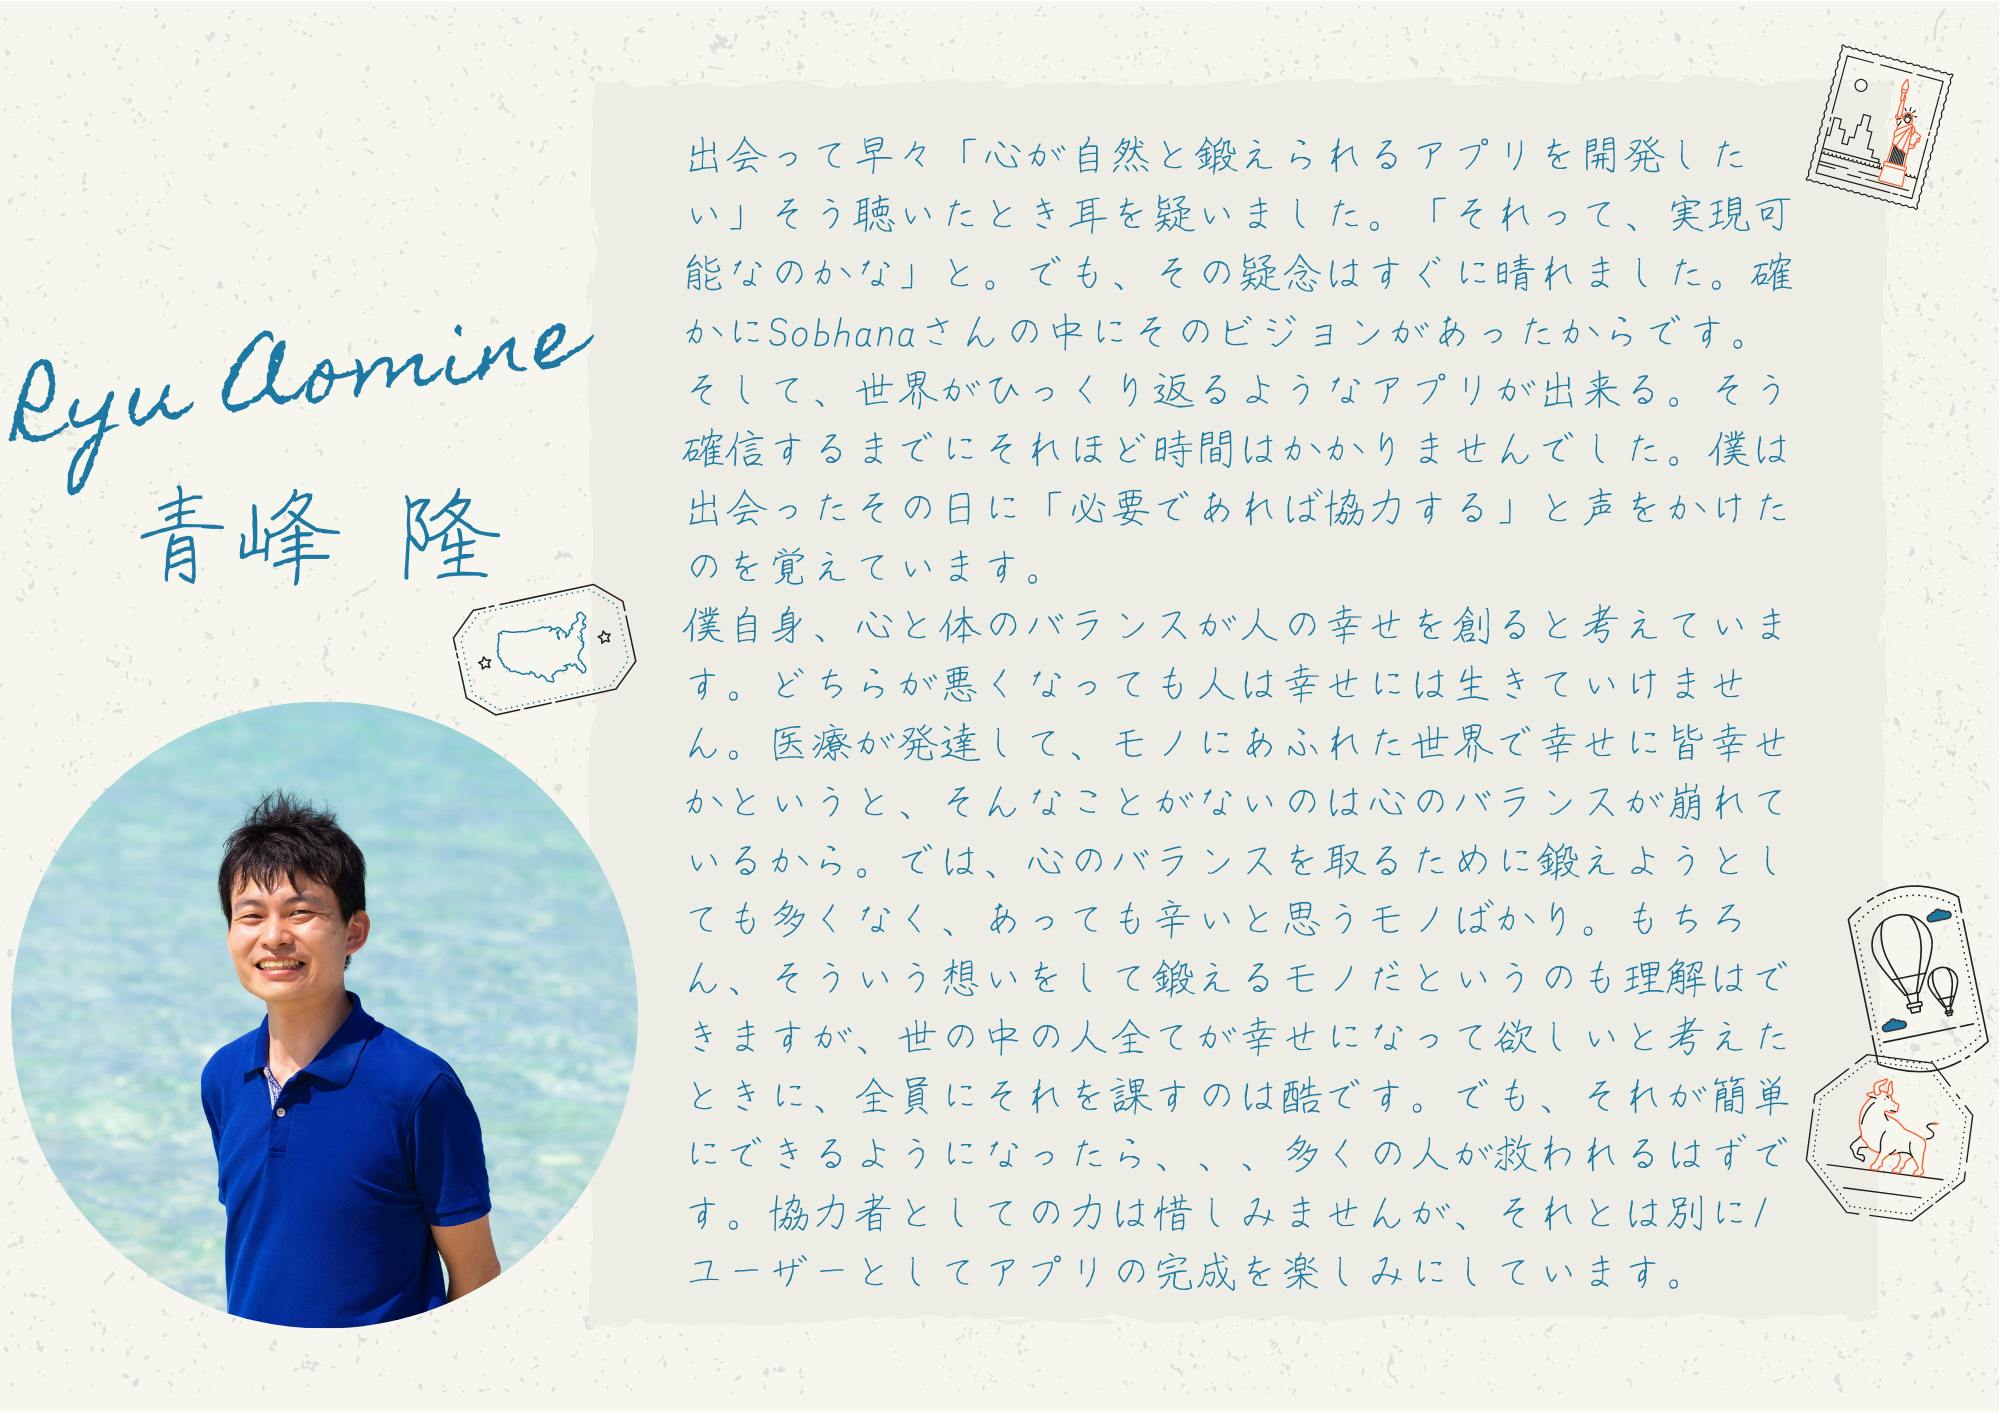 Ryu Aomine
青峰 隆
出会って早々「心が自然と鍛えられるアプリを開発した
い」そう聴いたとき耳を疑いました。「それって、実現可
能なのかな」と。でも、その疑念はすぐに晴れました。確
かにSobhanaさんの中にそのビジョンがあったからです。
そして、世界がひっくり返るようなアプリが出来る。そう
確信するまでにそれほど時間はかかりませんでした。僕は
出会ったその日に「必要であれば協力する」と声をかけた
のを覚えています。
僕自身、心と体のバランスが人の幸せを創ると考えていま
す。どちらが悪くなっても人は幸せには生きていけませ
ん。医療が発達して、モノにあふれた世界で幸せに皆幸せ
かというと、そんなことがないのは心のバランスが崩れて
いるから。では、心のバランスを取るために鍛えようとし
ても多くなく、あっても辛いと思うモノばかり。もちろ
ん、そういう想いをして鍛えるモノだというのも理解はで
きますが、世の中の人全てが幸せになって欲しいと考えた
ときに、全員にそれを課すのは酷です。でも、それが簡単
にできるようになったら、、、多くの人が救われるはずで
す。協力者としての力は惜しみませんが、それとは別に/
ユーザーとしてアプリの完成を楽しみにしています。